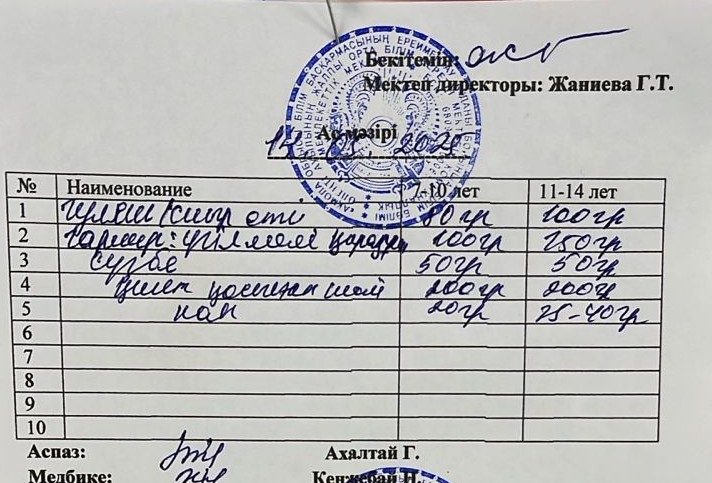 Бекітемін:
Мектеп директоры: Жаниева Г.Т.
Ас мәзірі
2025
№ Наименование 7-10 лет 11-14 лет
1 Гуляш /сиыр еті 80гр 100гр
2 Гарнир: үгілмелі қарақұм 100гр 150гр
3 сүзбе 50гр 50гр
4 қосылған шай 200гр 200гр
5 нан 20гр 25-40гр
6
7
8
9
10
Аспаз: Ахалтай Г.
Медбике: Кенжебай Н.